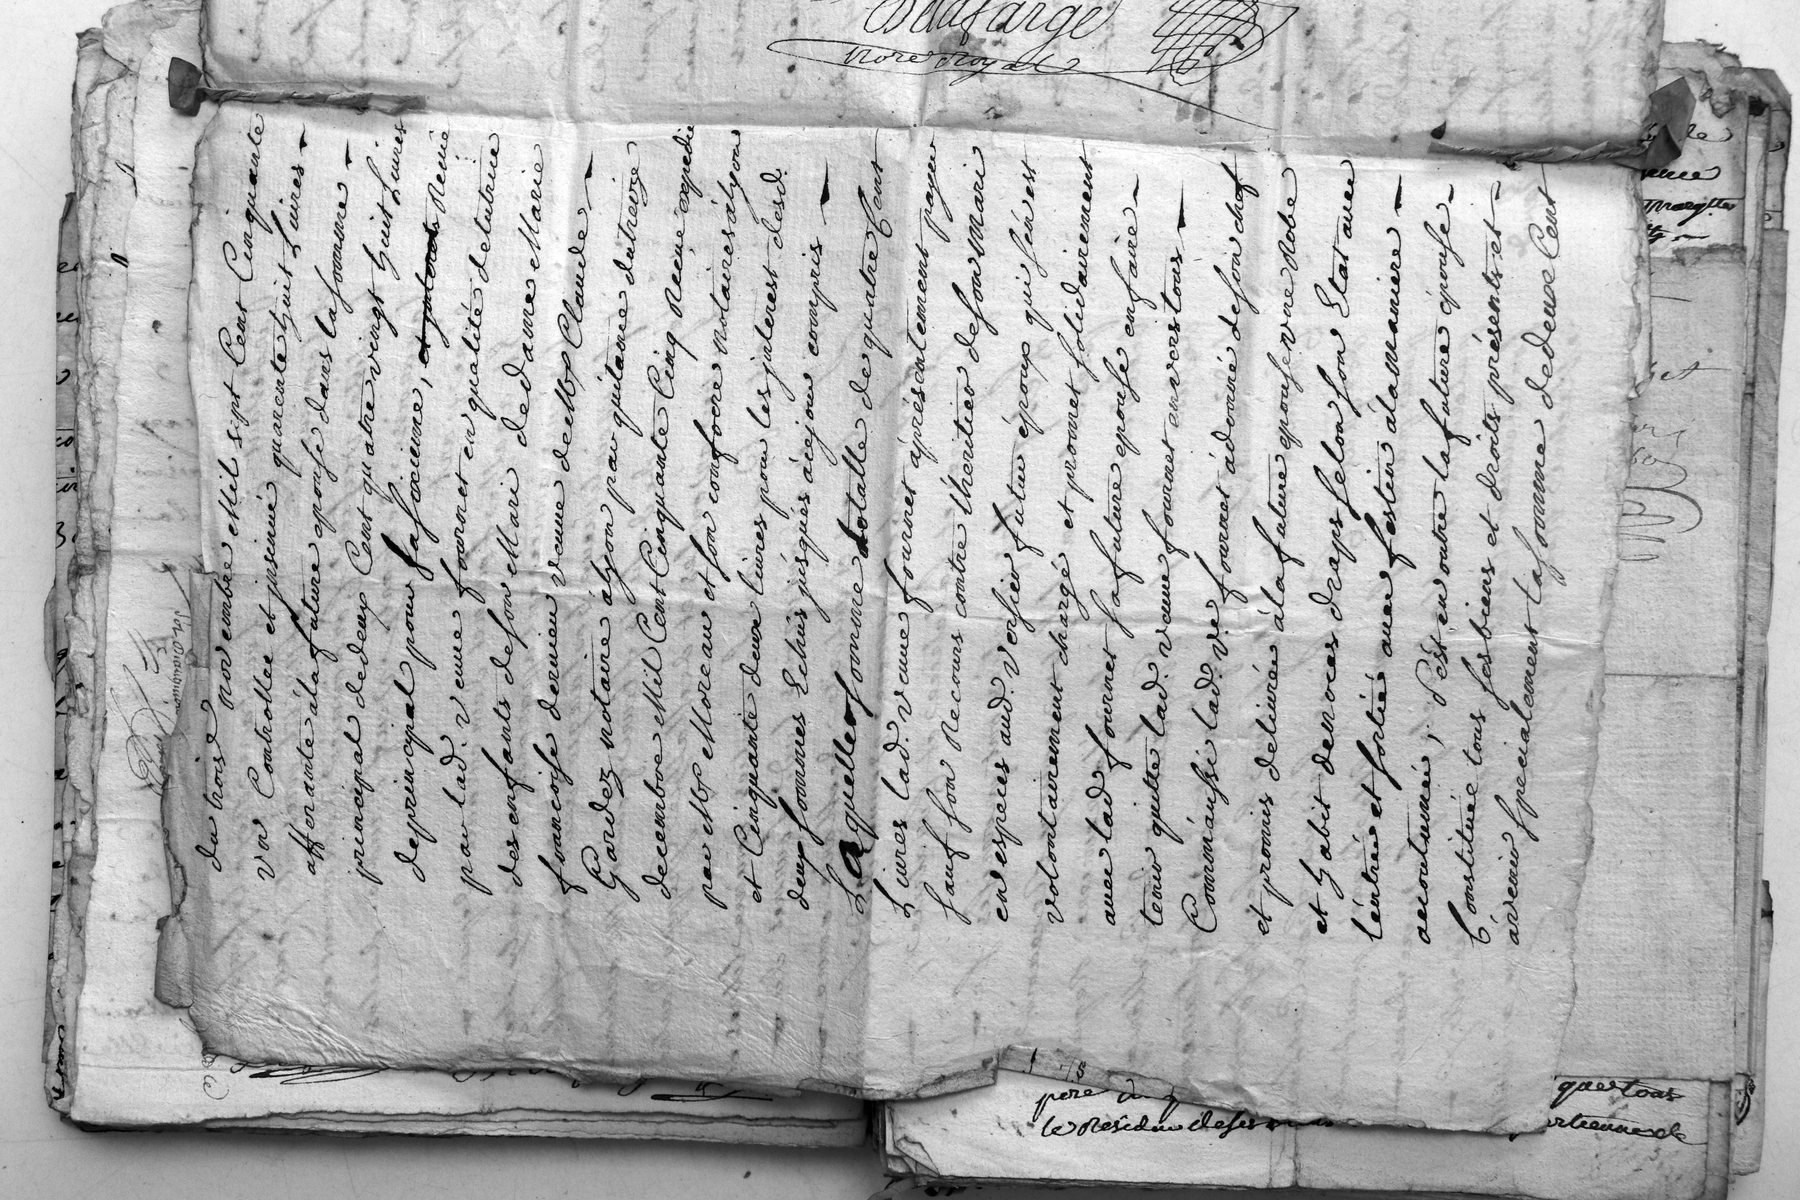 Delafarge
Nore Royal
du trois novembre Mil sept Cent Cinquante
un Controllée et jnsinué quarente huit Livres
afferante à la future epouse dans la somme
principal de deux Cent quatre vingt huit Livres
de princypal pour sa sixieme, Recue
par lad. veuve fournet en qualité de tutrice
des enfants de son Mari de dame Marie
francoise dernieu veuve de Mr Claude
Gardez notaire à lyon par quitance du treize
decembre Mil Cent Cinquante Cinq Recue expedie
par Mr Moreau et son confrere Notaires à lyon
et Cinquante deux livres pour les jnterest desd.
deux sommes Echus jusqués à ce jour compris
Laquelle somme totalle de quatre Cent
Livres lad. veuve fournet à présentement payée
sauf son Recours contre l'heritier de son Mari
en espèces aud. Versieu futur époux qui s'en est
volontairement chargé et promet solidairement
avec lad fournet sa future epouse en faire
tenir quitte lad. veuve fournet envers tous
Comm'aussi lad. ve fournet à donné de son chef
et promis delivrér à la future epouse une Robe
et habit de noces draps selon son Etat avec
l'entrée et sortie avec festin à la maniere
accoutumée; s'est en outre la future épouse
Constituée tous ses biens et droits présents et
àvenir spécialement la somme de deux Cent
pere
le Residu de ses
que tous